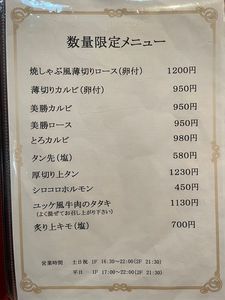 数量限定メニュー
焼しゃぶ風薄切りロース(卵付) 1200円
薄切りカルビ(卵付) 950円
美勝カルビ 950円
美勝ロース 950円
とろカルビ 980円
タン先(塩) 580円
厚切り上タン 1230円
シロコロホルモン 450円
ユッケ風牛肉のタタキ 1130円
(よく混ぜてお召し上がり下さい)
炙り上キモ(塩) 700円
営業時間 土日祝 1F 16:30~22:00(2F 21:30)
平日 1F 17:00~22:00(2F 21:30)